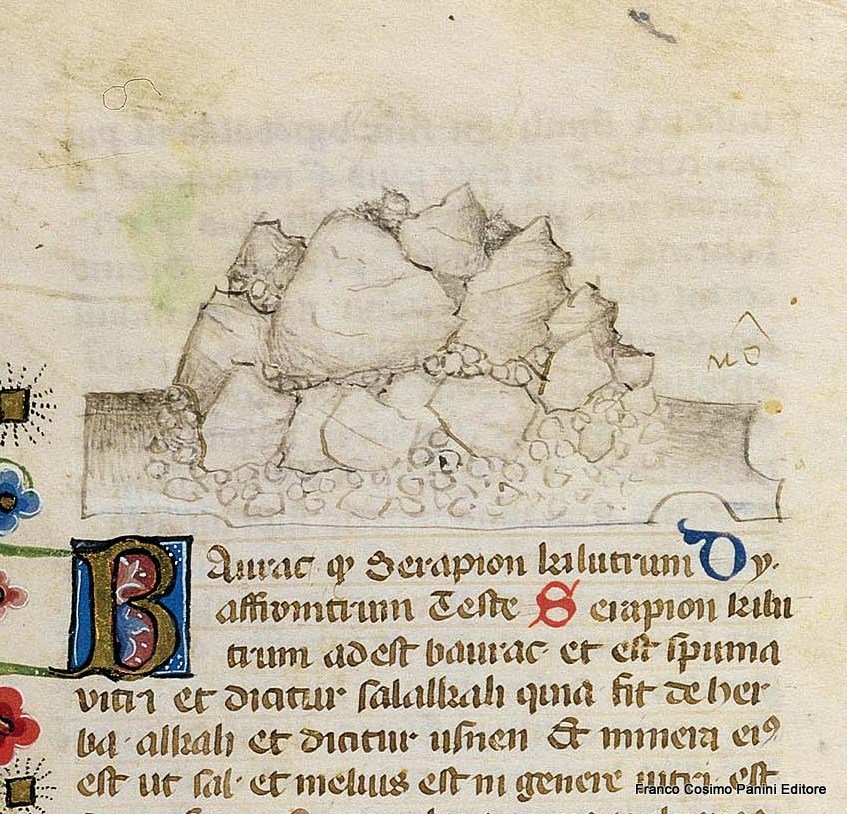 nō
Baurac qͥ Serapion kilutrum Dy.
affronitrum Teste Serapion kilu
trum adest baurac et est spuma
vitri et dicitur salalkali quia fit de her
ba alkali et dicitur usnen Et minera eiꝰ
est ut sal et melius est in genere nitri est
Franco Cosimo Panini Editore